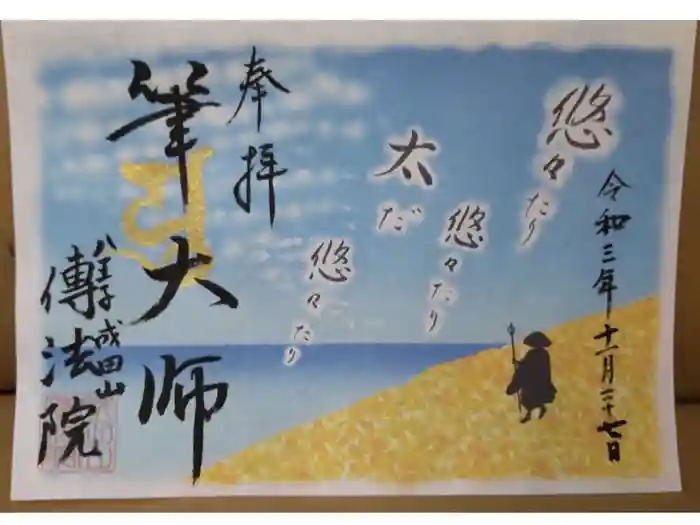 令和三年十一月二十七日
悠々たり
悠々たり
太だ
悠々たり
奉拝
筆大師
八王子成田山
傳法院